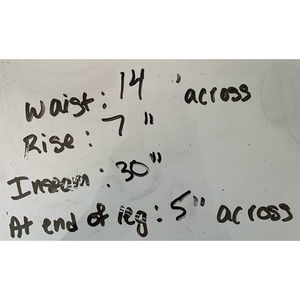 Waist: 14 " across
Rise: 7"
Inseam: 30"
At end of leg: 5" across